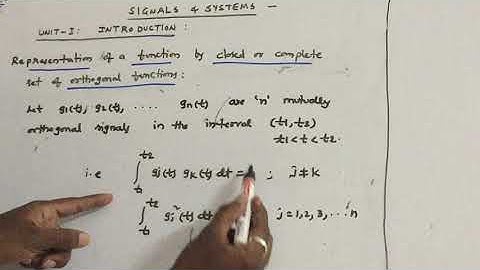 SIGNALS & SYSTEMS -
UNIT-I: INTRODUCTION:
Representation of a function by closed or complete
set of orthogonal functions:
Let g1(t), g2(t), .... gn(t) are 'n' mutually
orthogonal signals in the interval (t1, t2)
t1 < t < t2.
i.e ∫ t1 t2 gj(t) gk(t) dt = ; j ≠ k
∫ t1 t2 gj²(t) dt j = 1, 2, 3, ... n